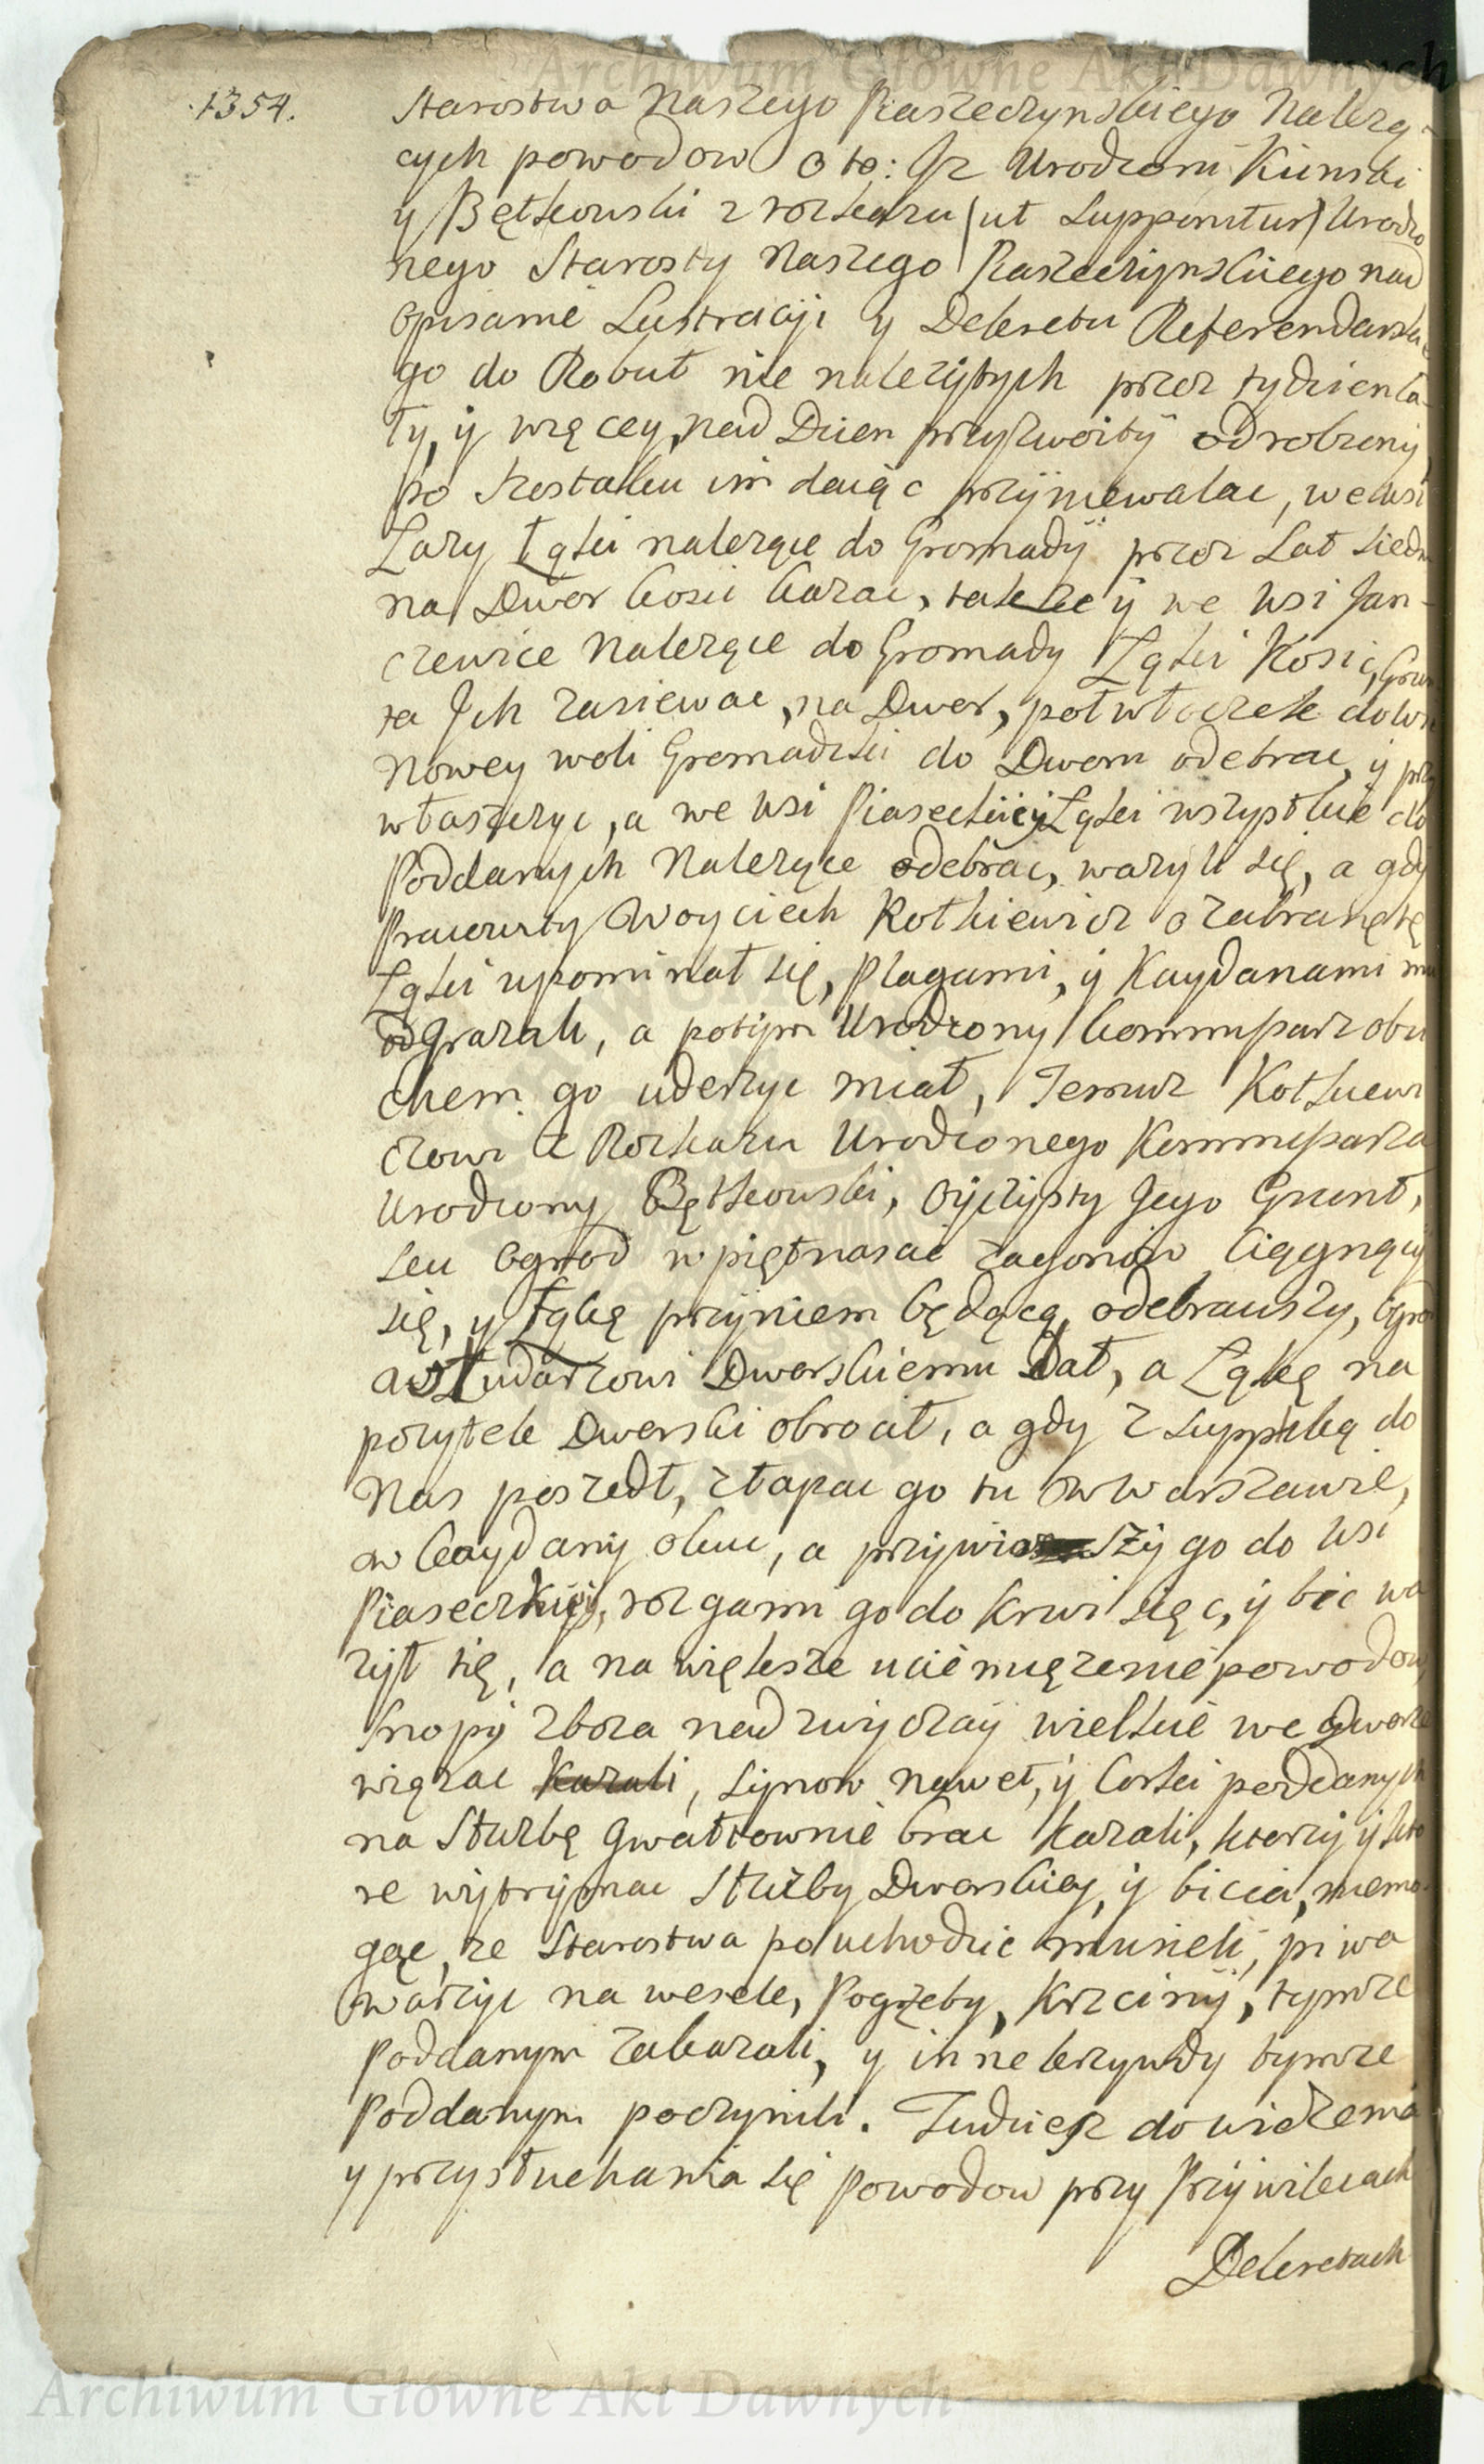 Archiwum Główne Akt Dawnych
1354.
Starostwa Naszego Piaseczynskiego Nalezą-
cych powodow o to: Jz Urodzoni Kunski
y Bętkowski z rozkazu (ut Supponitur) Urodzo
nego Starosty Naszego Piaseczynskiego nad
Opisanie Lustracyi y Dekretu Referendarskie
go do Robut nie nalezytych przez tydzien ca-
ły, y więcey, nad Dzien przyzwoity odrobiony,
po Szostaku im daiąc przymewalac, we wsi
Zary Łąki nalezące do Gromady przez Lat siedm
na Dwor kosić kazac, takze y we wsi Jan-
czewice Nalezące do Gromady Łąki Kosic, Grun
ta Jch zasiewac, na Dwor, połwłoczek do wsi
Nowey woli Gromadzki do Dworu odebrac, y przy
właszczyc, a we wsi Piaseckiey Łąki wszystkie do
Poddanych Nalezące odebrac, wazyli się, a gdy
Pracowity Woyciech Kotkiewicz o zabranę tę
Łąki upominał się, Plagami, y Kaydanami mu
odgrazali, a potym Urodzony Kommissarz obu
chem go uderzyc miał, Temuz Kotkiewi
czowi z Rozkazu Urodzonego Kommissarza
Urodzony Bętkowski, Oyczysty Jego Grunt,
seu Ogrod w piętnascie zagonow Ciągnący
się, y Łąkę przyniem będącą, odebrawszy, Ogrod
Dworskiemu Dał, a Łąkę na
pozytek Dworski obrocił, a gdy z Suppliką do
Nas poszedł, złapac go tu w Warszawie,
w kaydany okuc, a przywioszszy go do wsi
Piaseczkiey, rozgami go do krwi siec, y bic wa
zył się, a na większe uciemięzenie powodow
Snopy zboza nad zwyczay wielkie we dworze
wiązac Kazali, synow nawet, y Corki poddanych
na Słuzbę Gwałtownie brac Kazali, ktorzy y kto
re wytrzymac Słuzby Dworskiey, y bicia, niemo-
gąc, ze Starostwa pouchodzic musieli, piwa
warzyc na wesele, Pogrzeby, Krzciny, tymze
Poddanym zakazali, y inne krzywdy tymze
Poddanym poczynili. Tudziesz do widzenia
y przysłuchania się Powodow przy Przywileiach
Dekretach
Archiwum Główne Akt Dawnych